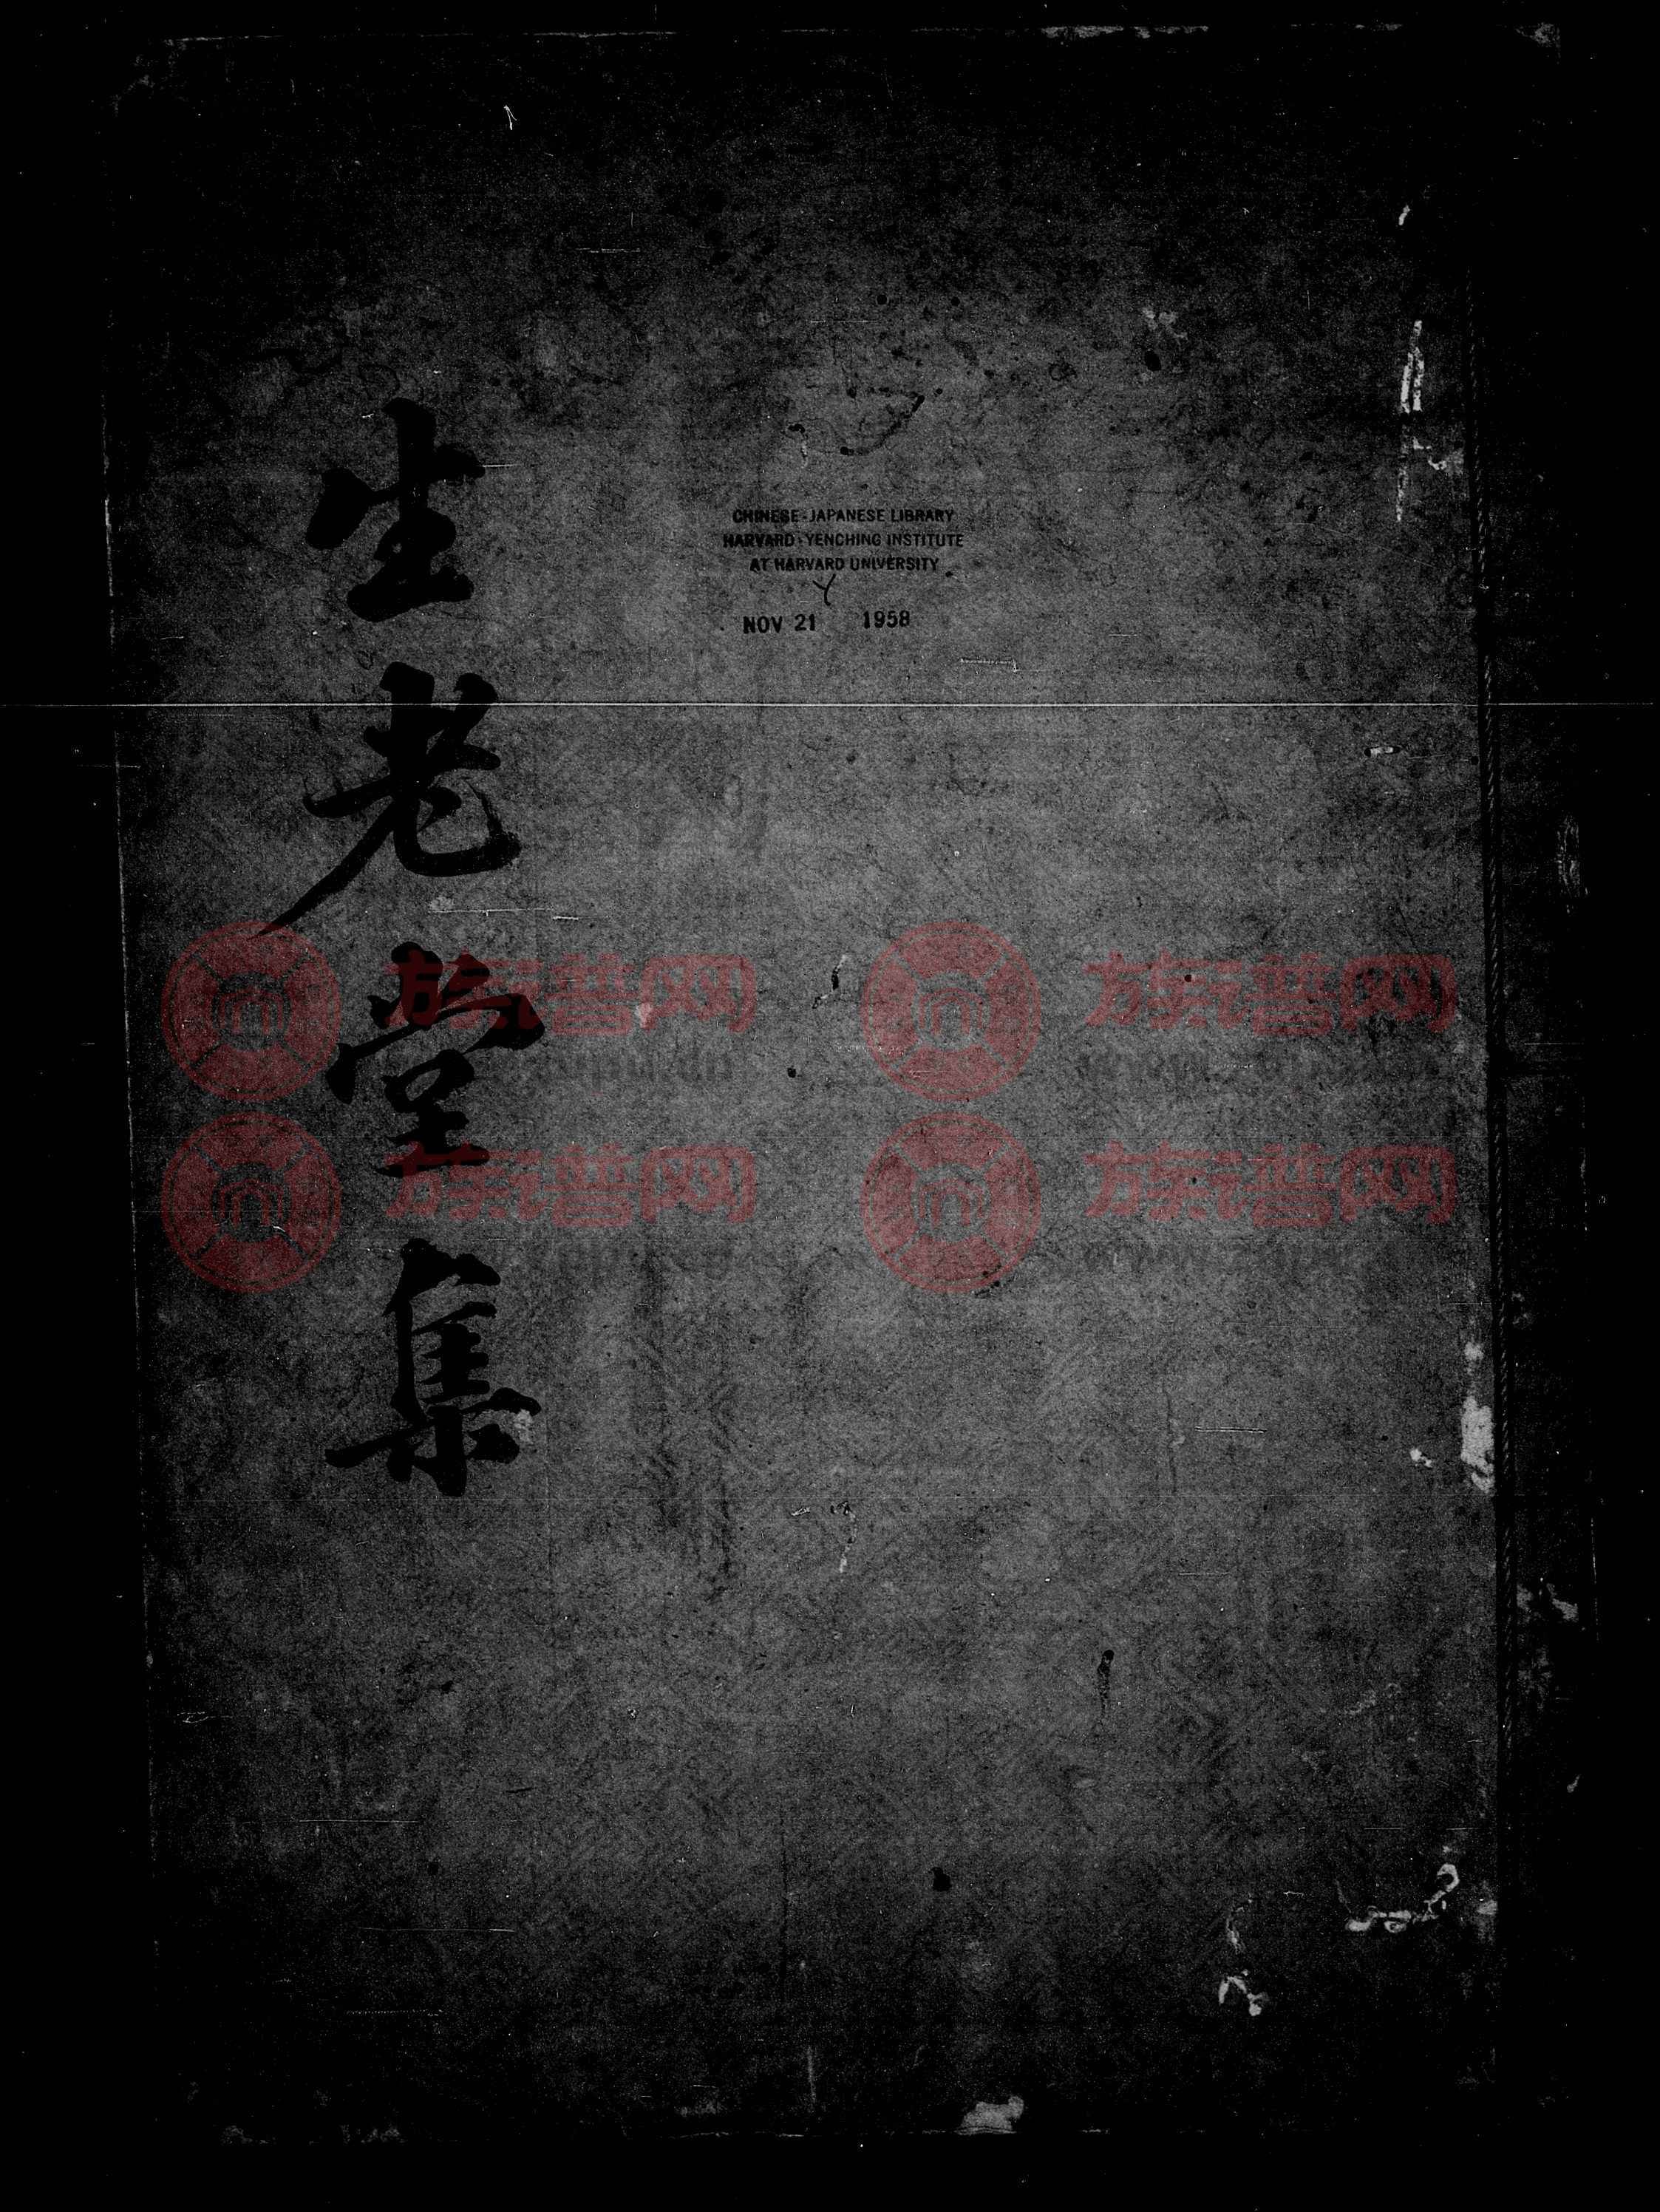 生老堂集
CHINESE-JAPANESE LIBRARY
HARVARD-YENCHING INSTITUTE
AT HARVARD UNIVERSITY
NOV 21 1958
族谱网
族谱网
族谱网
族谱网